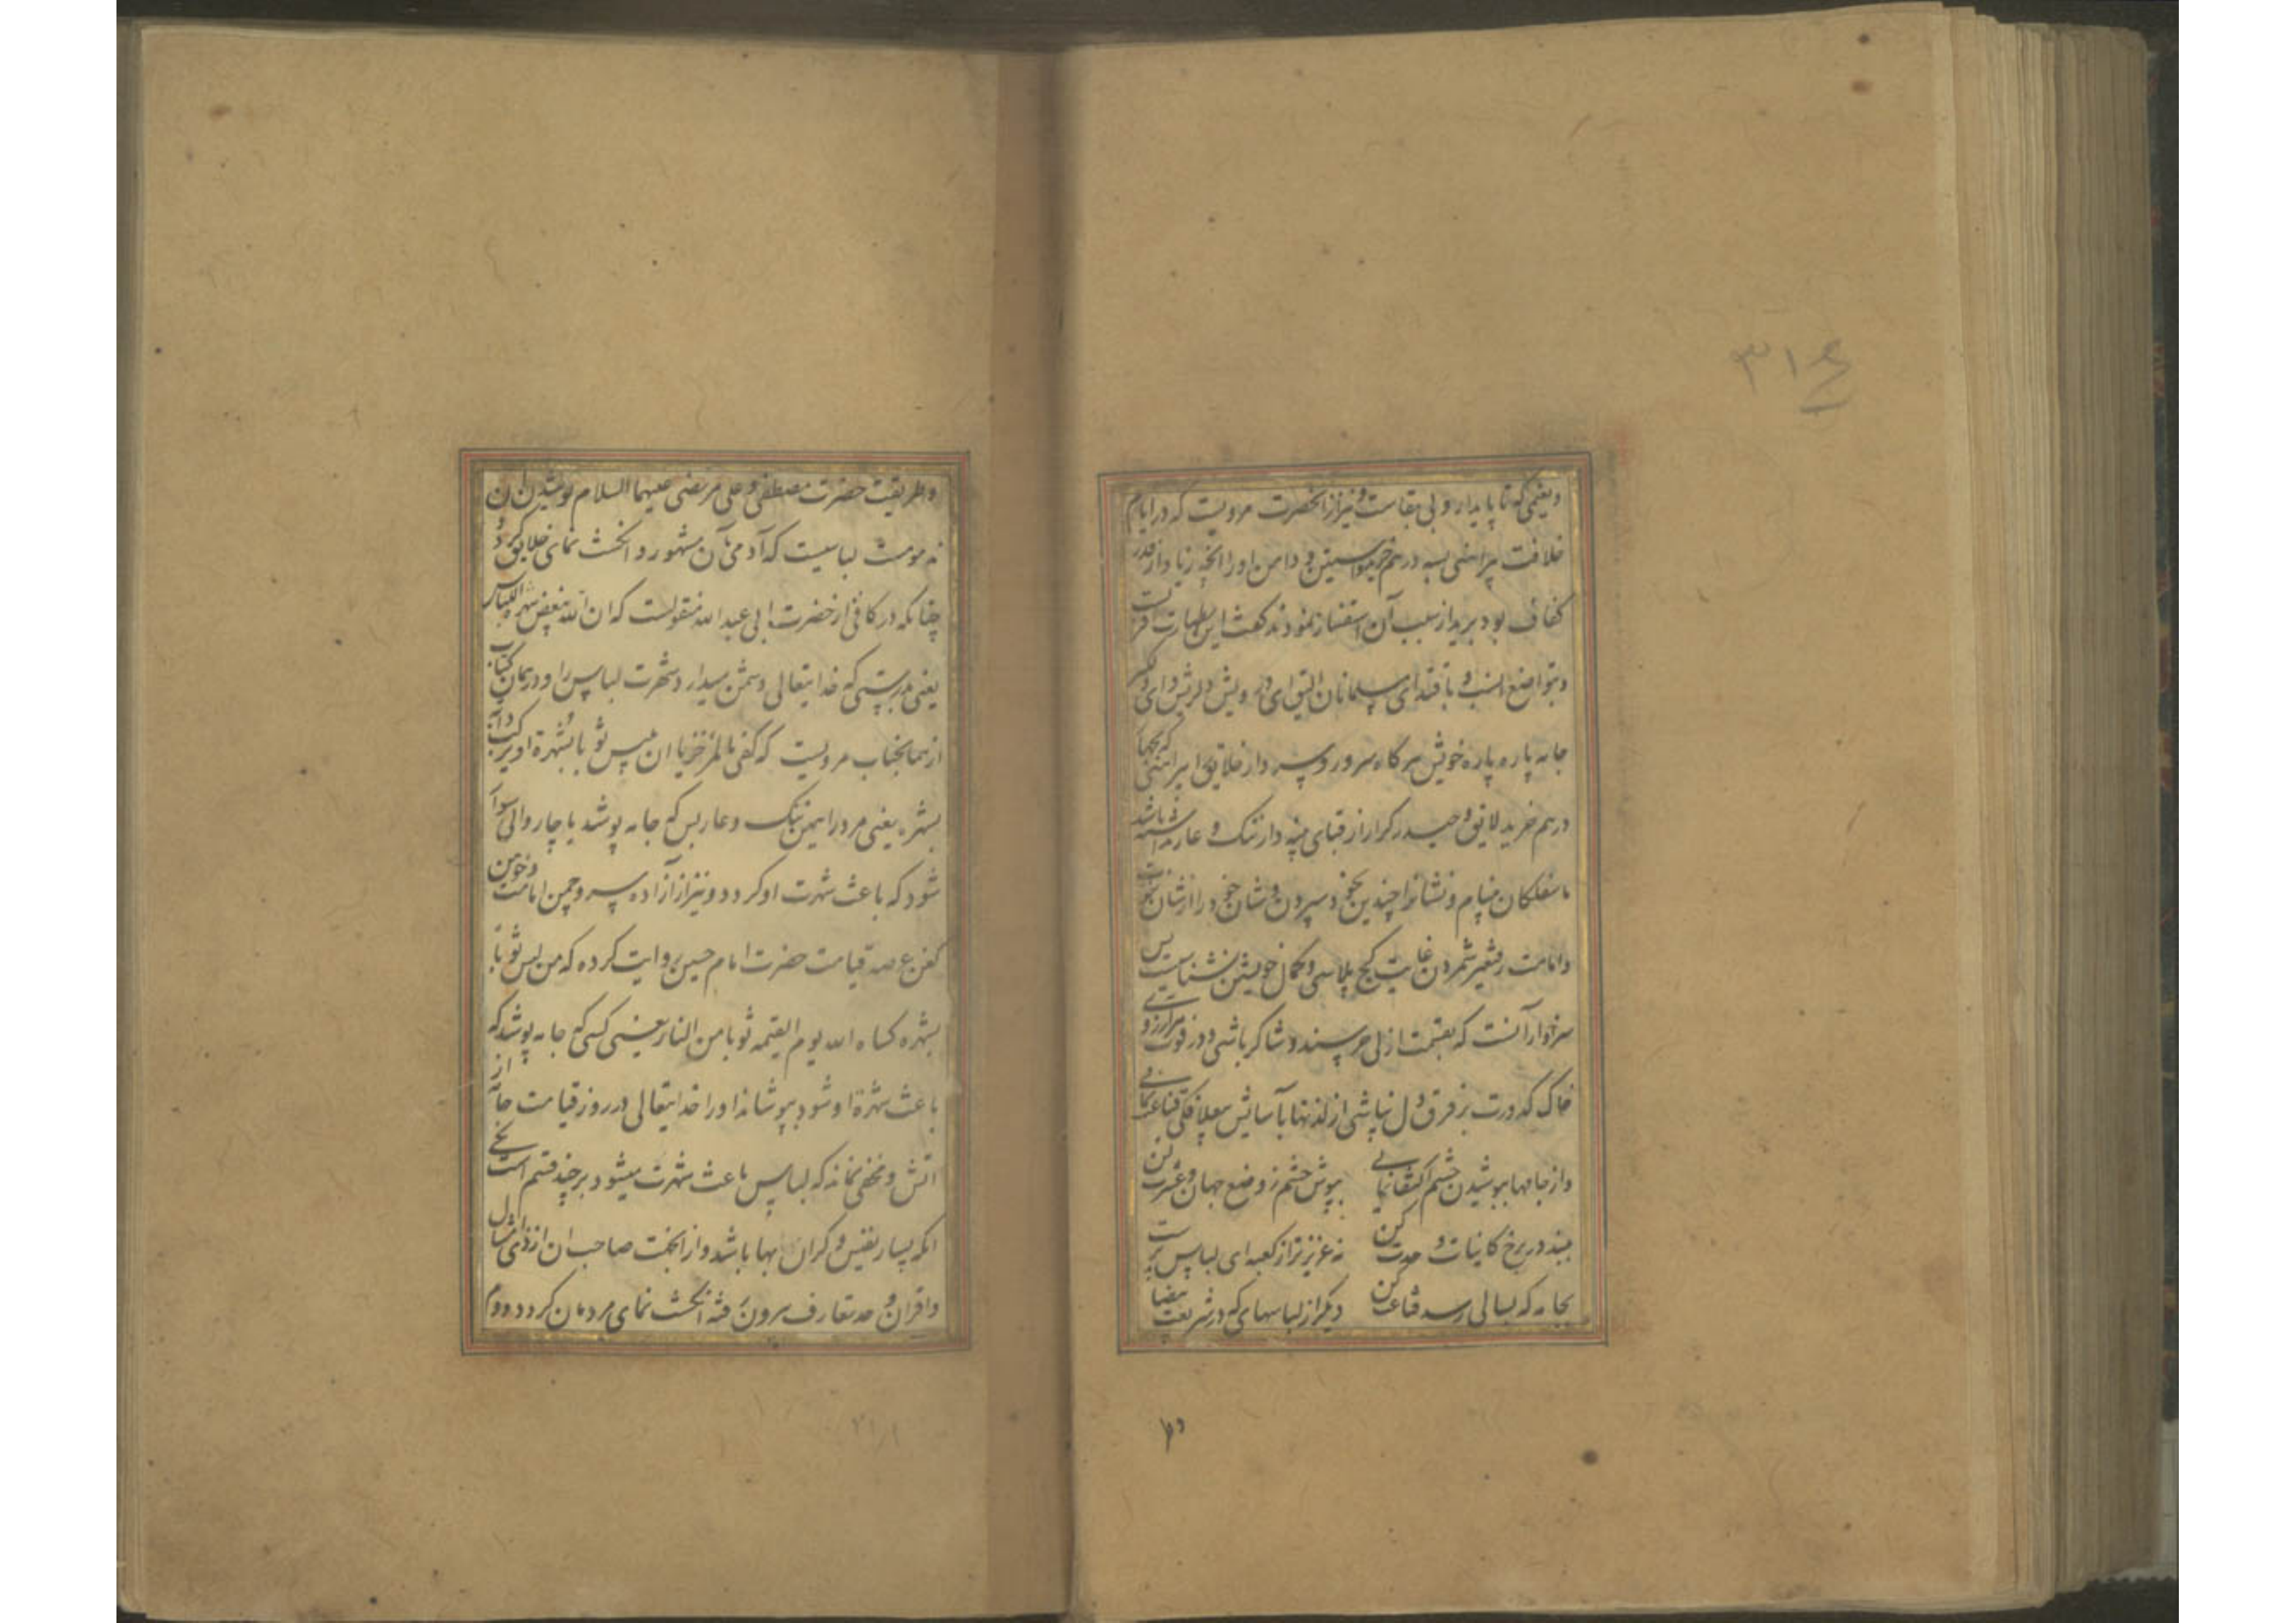 ۳۱۶
و نعیمی که ناپایدار و بی بقاست و نیز از آنحضرت مرویست که در ایام
خلافت پیراهنی بسه درهم خرید و آستین و دامن او را آنچه زیاد از قدر
کفاف بود برید از سبب آن استفسار نمودند گفت این بطهارت اقربست
و بتواضع انسب و باقتدای مسلمانان الیق ای درویش دلریش وای
جامه پاره پاره خویش هرگاه سرور و سردار خلایق را پیراهنی که بچهار
درهم خرید لایق و حیدر کرار از قبای پنبه دار ننگ و عار داشته باشد
ما سفلگان
و امامت
سزاوار آنست که بقسمت ازلی خرسند و شاکر باشی و در فوت مرادآرزوی
خاک کدورت بر فرق دل نپاشی از لذتها بآسایش قناعت نمائی
و از جامها بپوشیدن چشم اکتفا نمائی بپوش چشم ز وضع جهان و عشرت کن
ببند در برخ کاینات و حدت کن نه عزیزتر از کعبه ای لباس پرست
بجامه که بسالی رسد قناعت کن دیگر از لباسهای که در شریعت بیضا
و طریقت حضرت مصطفی و علی مرتضی علیهما السلام پوشیدن آن
مذمومست لباسیست که آدمی بآن مشهور و انگشت نمای خلایق گردد
چنانکه در کافی از حضرت ابی عبد الله منقولست که ان الله یبغض شهرة اللباس
یعنی بدرستی که خدایتعالی دشمن میدارد شهرت لباس را و در همان کتاب
از همانجناب مرویست که کفی بالمرء خزیا ان یلبس ثوبا یشهره او یرکب دابة
تشهره یعنی مرد را همین ننگ و عار بس که جامه پوشد یا چاروائی سوار
شود که باعث شهرت او گردد و نیز از آزاده سرو چمن امامت و
عرصه قیامت حضرت امام حسین روایت کرده که من لبس ثوبا
یشهره کساه الله یوم القیمه ثوبا من النار یعنی کسی که جامه پوشد که
باعث شهرة او شود بپوشاند او را خدایتعالی در روز قیامت جامه از
آتش و مخفی نماند که لباس باعث شهرت میشود بر چند قسم است یکی
آنکه بسیار نفیس و گران بها باشد و از آنجهت صاحب آن از امثال
و اقران و حد متعارف بیرون رفته انگشت نمای مردمان گردد دوم